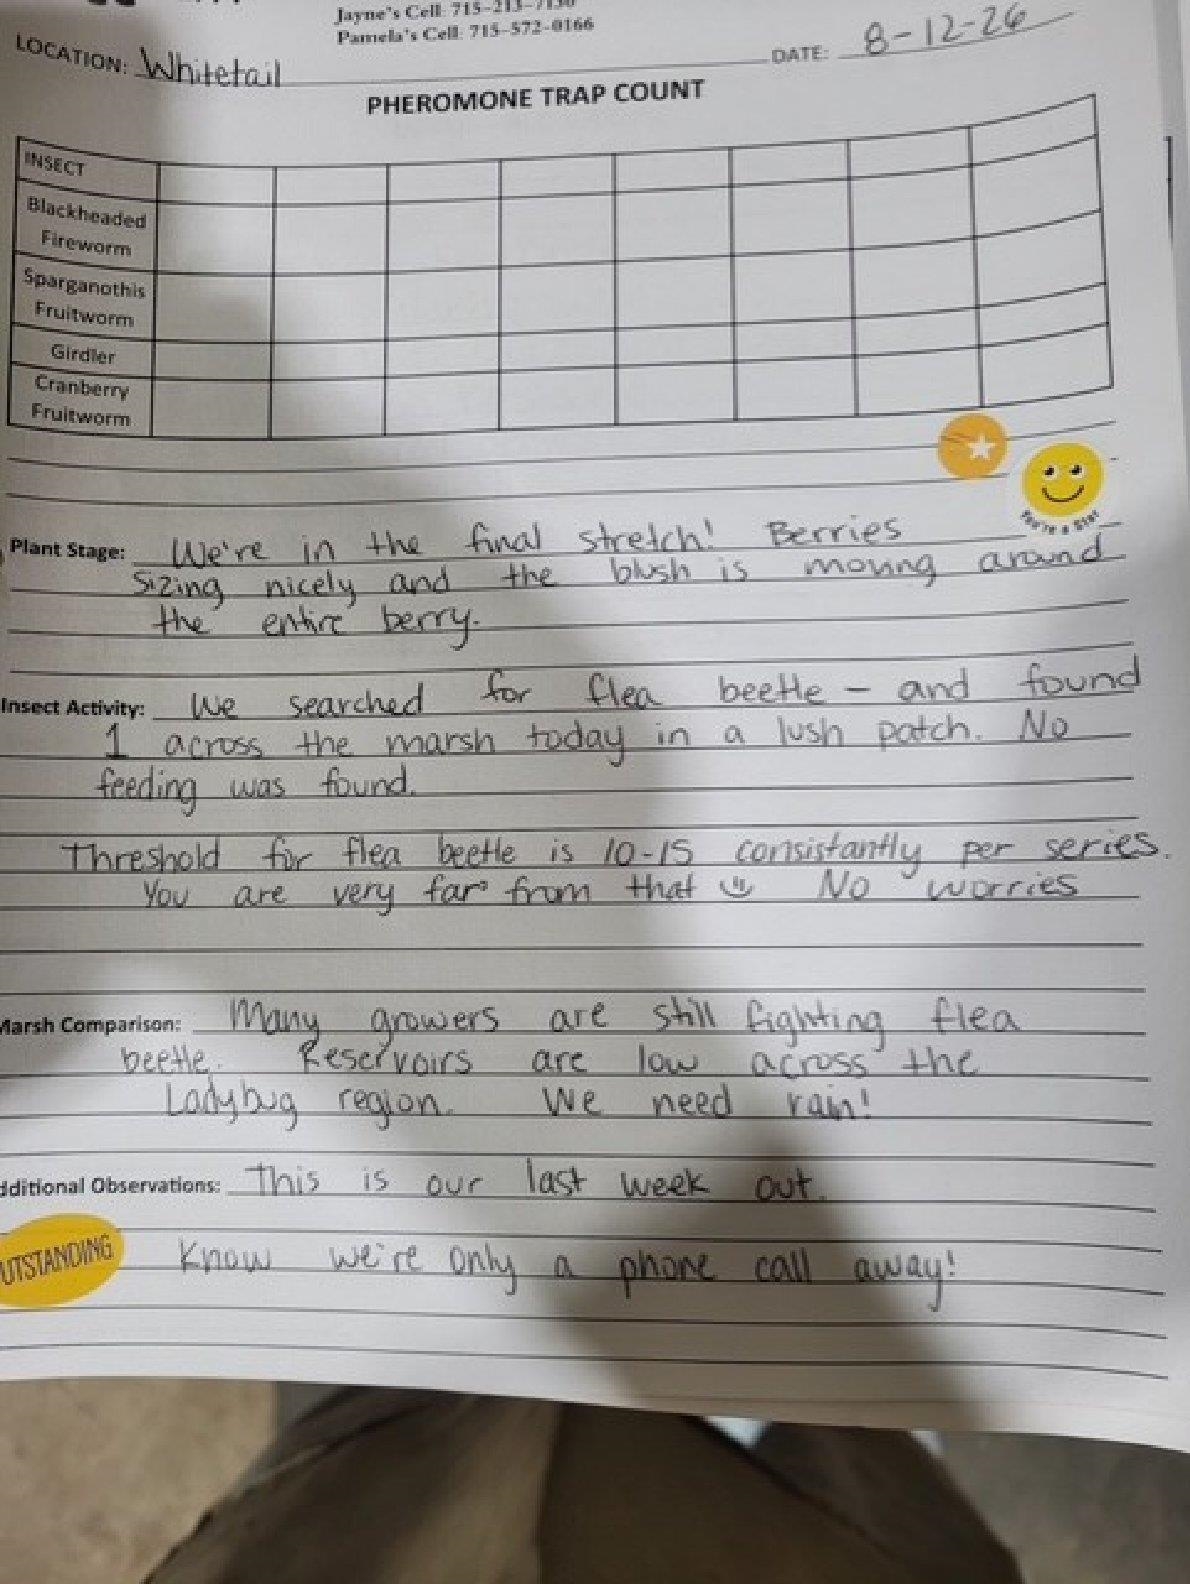 Jayne's Cell: 715-213-7130
Pamela's Cell: 715-572-0166
LOCATION: Whitetail DATE: 8-12-26
PHEROMONE TRAP COUNT
INSECT
Blackheaded
Fireworm
Sparganothis
Fruitworm
Girdler
Cranberry
Fruitworm
You're a Star
Plant Stage: We're in the final stretch! Berries
sizing nicely and the blush is moving around
the entire berry.
Insect Activity: We searched for flea beetle - and found
1 across the marsh today in a lush patch. No
feeding was found.
Threshold for flea beetle is 10-15 consistantly per series.
You are very far from that No worries
Marsh Comparison: Many growers are still fighting flea
beetle. Reservoirs are low across the
Ladybug region. We need rain!
dditional Observations: This is our last week out.
UTSTANDING
Know we're only a phone call away!